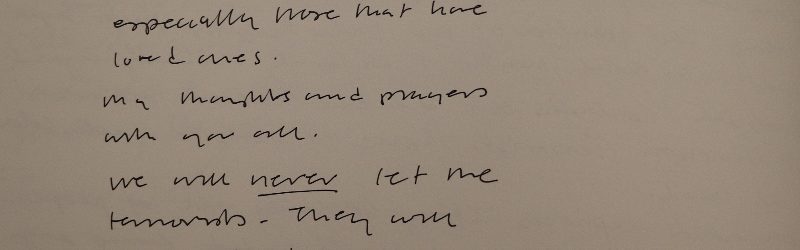 especially those that have
loved ones.
my thoughts and prayers
with you all.
we will never let the
terrorists - They will